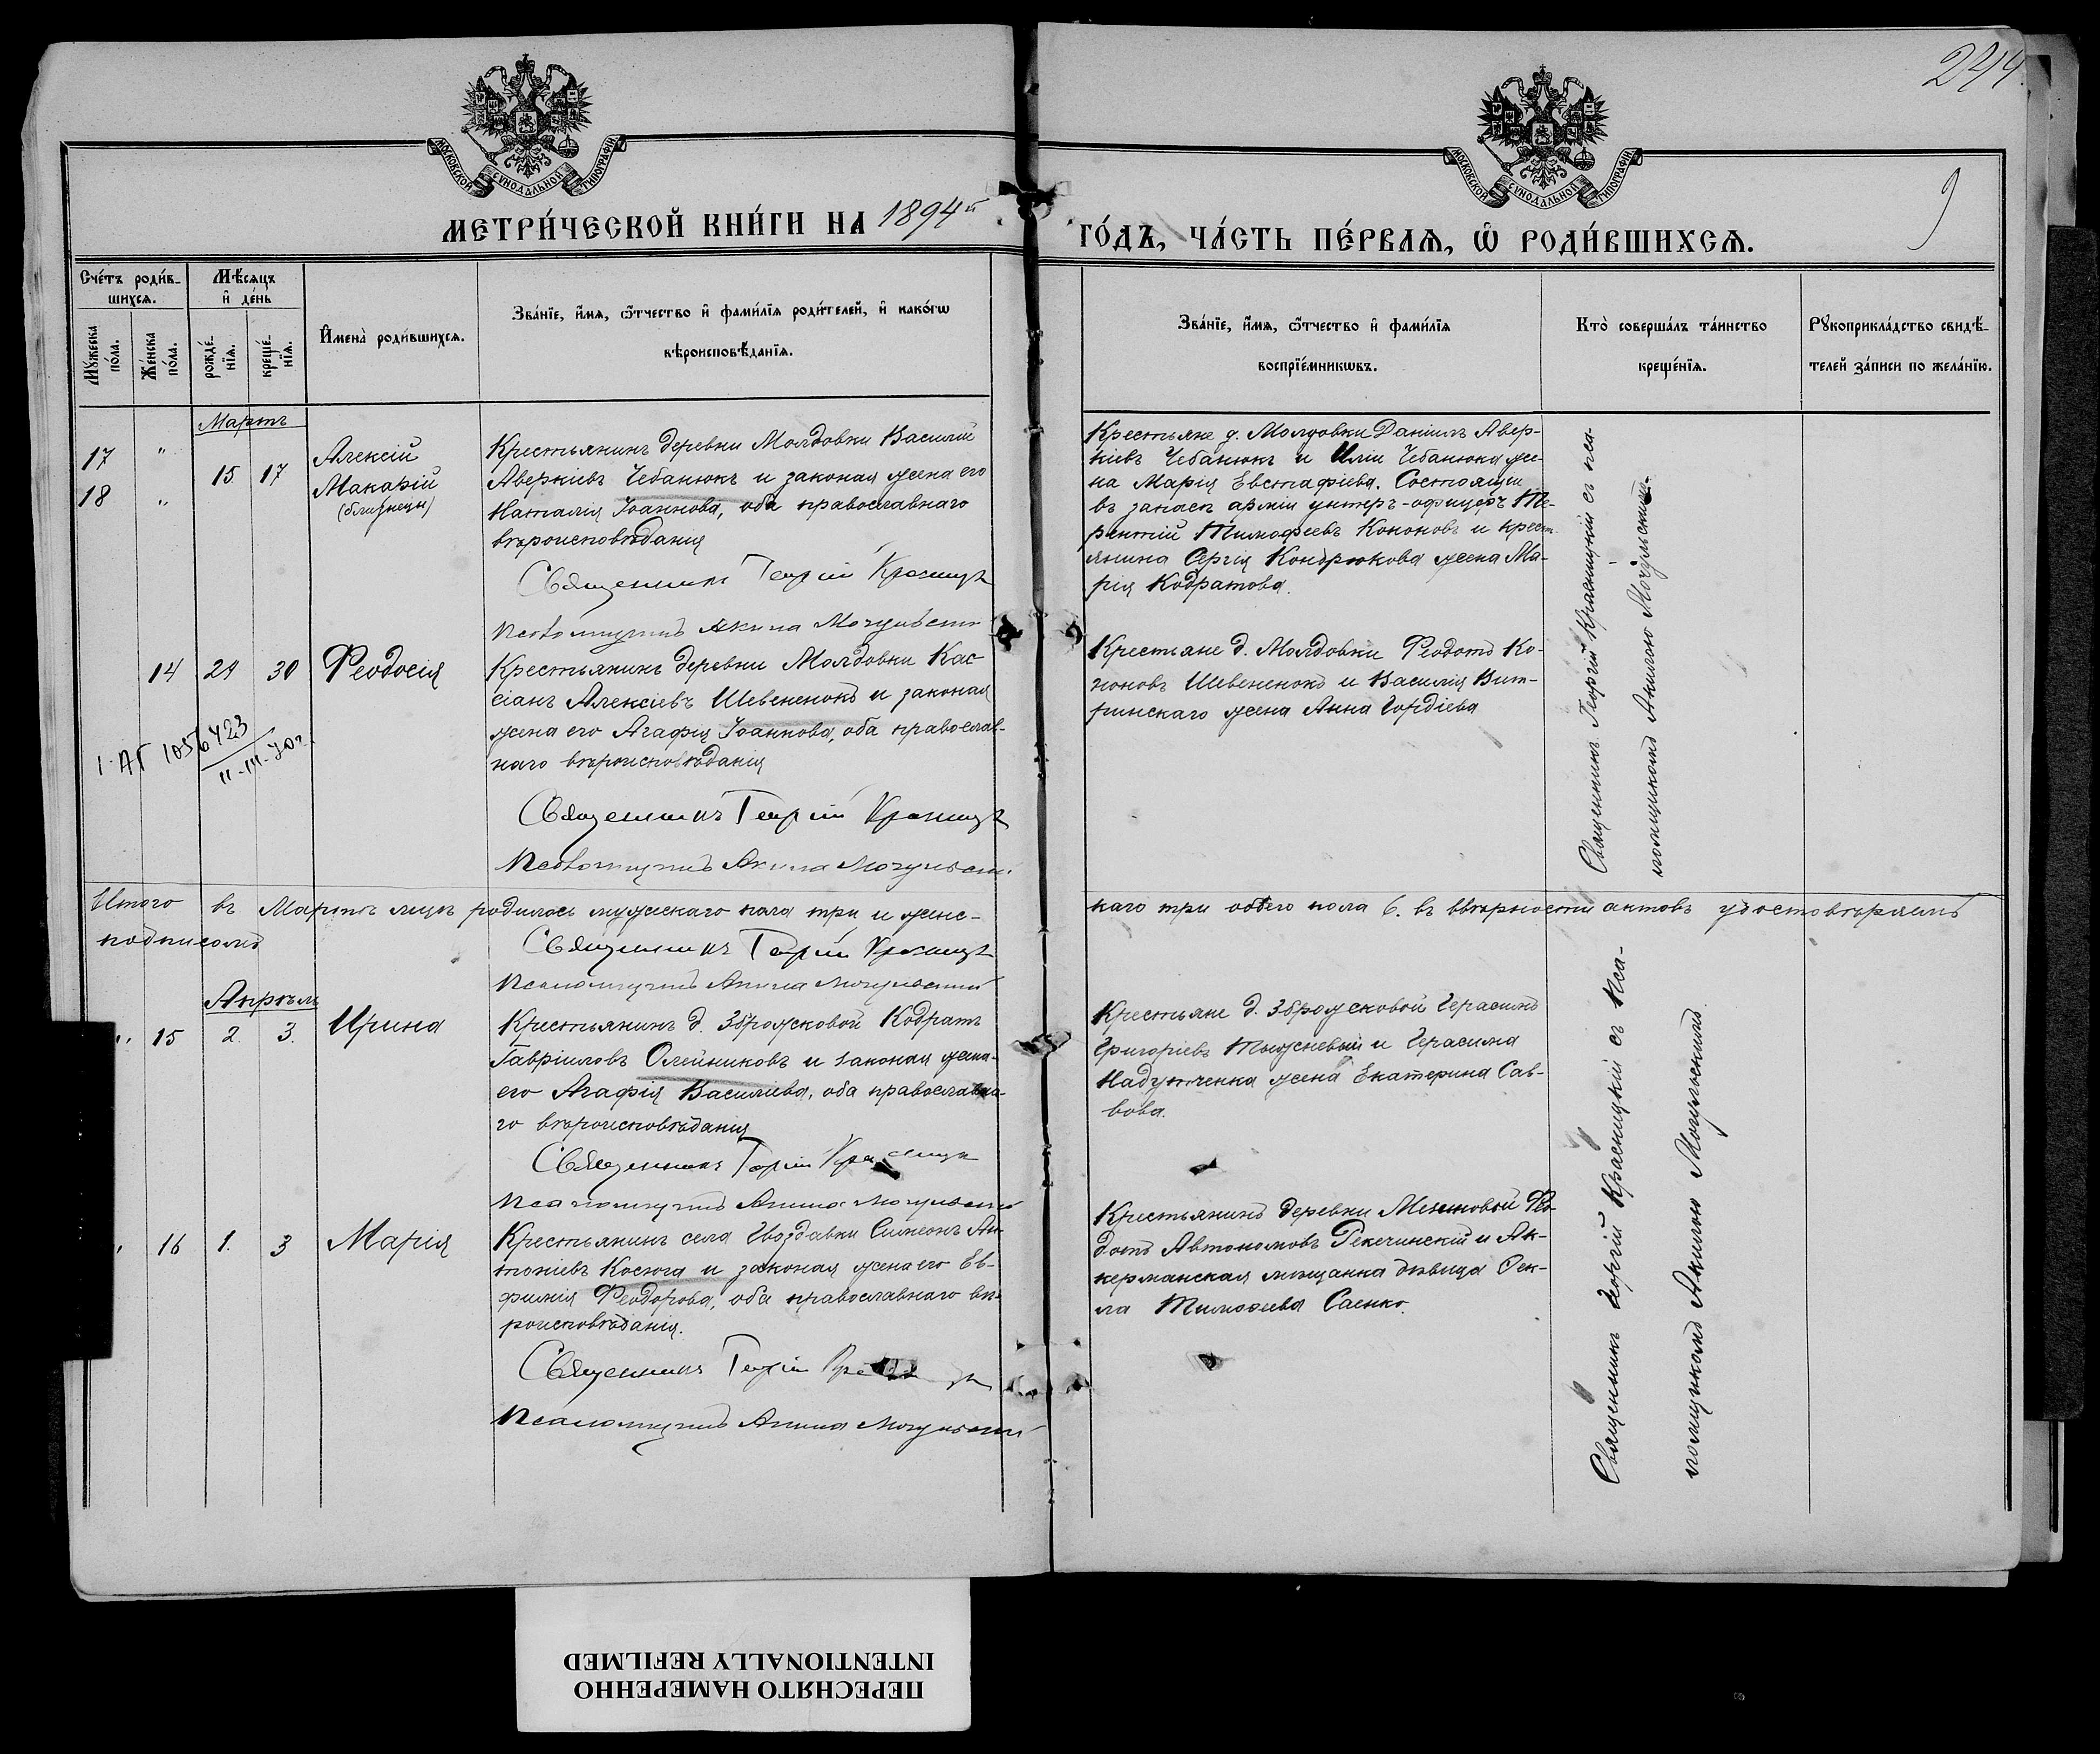 244.
9
МОСКОВСКОЙ СѴНОДАЛЬНОЙ ТИПОГРАФІИ
МОСКОВСКОЙ СѴНОДАЛЬНОЙ ТИПОГРАФІИ
МЕТРИ́ЧЕСКОЙ КНИ́ГИ НА 1894й ГО́ДЪ, ЧА́СТЬ ПЕ́РВАѦ, Ѽ РОДИ́ВШИХСѦ.
Сче́тъ роди́в-
шихсѧ.
Мꙋ́жеска
по́ла.
Же́нска
по́ла.
Мѣ́сѧцъ
и҆ де́нь
рожде́-
нїѧ.
креще́-
нїѧ.
И҆мена̀ роди́вшихсѧ.
Зва́нїе, и҆́мѧ, ѻ҆́тчество и҆ фами́лїѧ роди́телей, и҆ како́гѡ
вѣроисповѣ́данїѧ.
Зва́нїе, и҆́мѧ, ѻ҆́тчество и҆ фами́лїѧ
воспрїе́мникѡвъ.
Кто̀ соверша́лъ та́инство
креще́нїѧ.
Рꙋкоприкла́дство свидѣ́-
телей за́писи по жела́нїю.
Мартъ
17 "
18 "
15 17
Алексій
Макарій
(близнецы)
Крестьянинъ деревни Молдовки Василій
Аверкіевъ Чебанюкъ и законая жена его
Наталія Іоаннова, оба православнаго
вѣроисповѣданія
Священникъ Георгій Красницк
Псаломщикъ Акила Могульскій
Крестьяне д. Молдовки Даніилъ Авер-
кіевъ Чебанюкъ и Иліи Чебанюка же-
на Марія Евстафіева. Состоящій
въ запасѣ арміи унтеръ-офицеръ Те-
рентій Тимофеевъ Кононовъ и крест-
янина Сергія Кондрюкова жена Ма-
рія Кодратова.
Священникъ Георгій Красницкій съ пса-
ломщикомъ Акилою Могульскимъ.
14 24 30 Феодосія
Крестьянинъ деревни Молдовки Кас-
сіанъ Алексіевъ Шевененокъ и законая
жена его Агафія Іоаннова, оба православ-
наго вѣроисповѣданія
Священникъ Георгій Красницк
Псаломщикъ Акила Могульскій
Крестьяне д. Молдовки Феодотъ Ко-
ноновъ Шевененокъ и Василія Вит-
ринскаго жена Анна Гордіева
I-АГ 1056423
11-III-70г.
Итого въ Мартѣ мцѣ родилось мужескаго пола три и женс-
каго три обоего пола 6. въ вѣрности актовъ удостовѣряемъ
подписомъ
Священникъ Георгій Красницк
Псаломщикъ Акила Могульскій
Апрѣль
" 15 2. 3. Ирина
Крестьянинъ д. Зброжсковой Кодратъ
Гавріиловъ Олейниковъ и законая жена
его Агафія Василіева, оба православна-
го вѣроисповѣданія
Священникъ Георгій Красницк
Псаломщикъ Акила Могульскій
Крестьяне д. Зброжсковой Герасимъ
Григоріевъ Тыжневый и Герасима
Надутченка жена Екатерина Сав-
вова.
Священникъ Георгій Красницкій съ Пса-
ломщикомъ Акилою Могульскимъ
" 16 1. 3 Марія
Крестьянинъ села Гвоздавки Симеонъ Ан-
тоніевъ Косюга и законая жена его Ев-
фимія Феодорова, оба православнаго вѣ-
роисповѣданія.
Священникъ Георгій
Псаломщикъ Акила Могульскій
Крестьянинъ деревни Фео-
дотъ Автономовъ Гекечинскій и Ак-
керманская мѣщанка дѣвица Фек-
ла Тимофеева Саенко.
ПЕРЕСНЯТО НАМЕРЕННО
INTENTIONALLY REFILMED